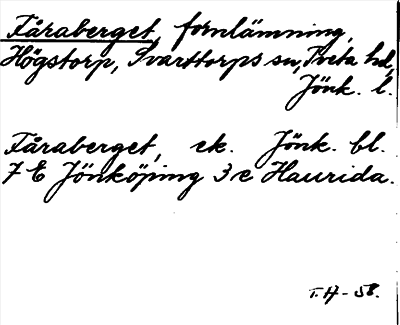 Fåraberget, fornlämning,
Högstorp, Svarttorps sn, Tveta hd,
Jönk. l.
Fåraberget, ek. Jönk. bl.
7 E Jönköping 3 e Haurida.
T. H - 58.